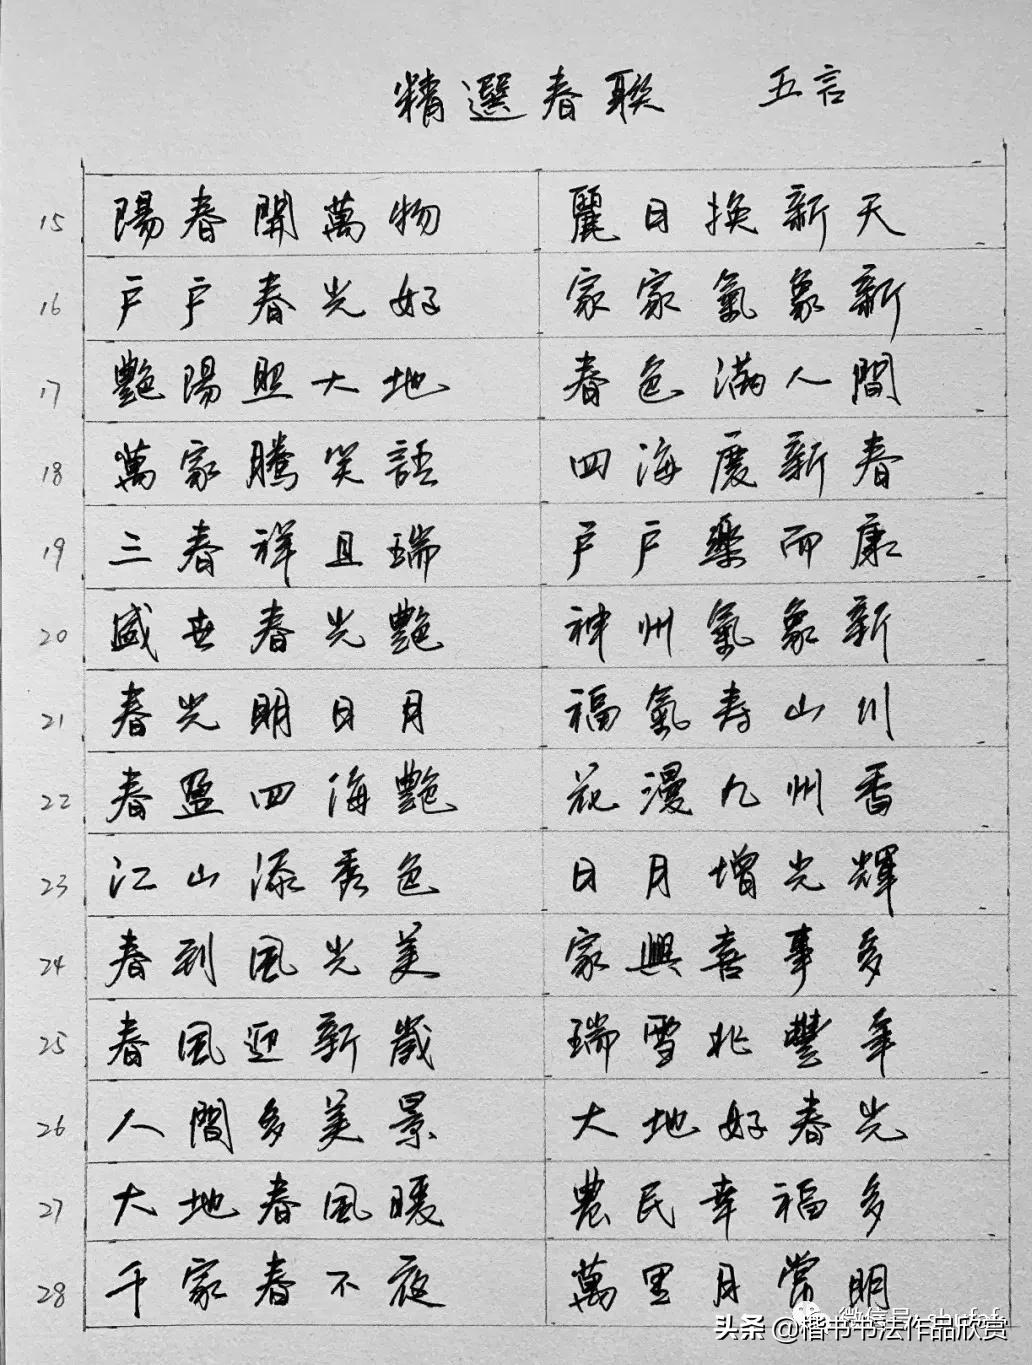 精選春聯 五言
15 陽春開萬物 麗日換新天
16 戶戶春光好 家家氣象新
17 艷陽照大地 春色滿人間
18 萬家騰笑語 四海慶新春
19 三春祥且瑞 戶戶樂而康
20 盛世春光艷 神州氣象新
21 春光明日月 福氣壽山川
22 春盈四海艷 花漫九州香
23 江山添秀色 日月增光輝
24 春到風光美 家興喜事多
25 春風迎新歲 瑞雪兆豐年
26 人間多美景 大地好春光
27 大地春風暖 農民幸福多
28 千家春不夜 萬里月常明
微信号:
头条 @楷书书法作品欣赏